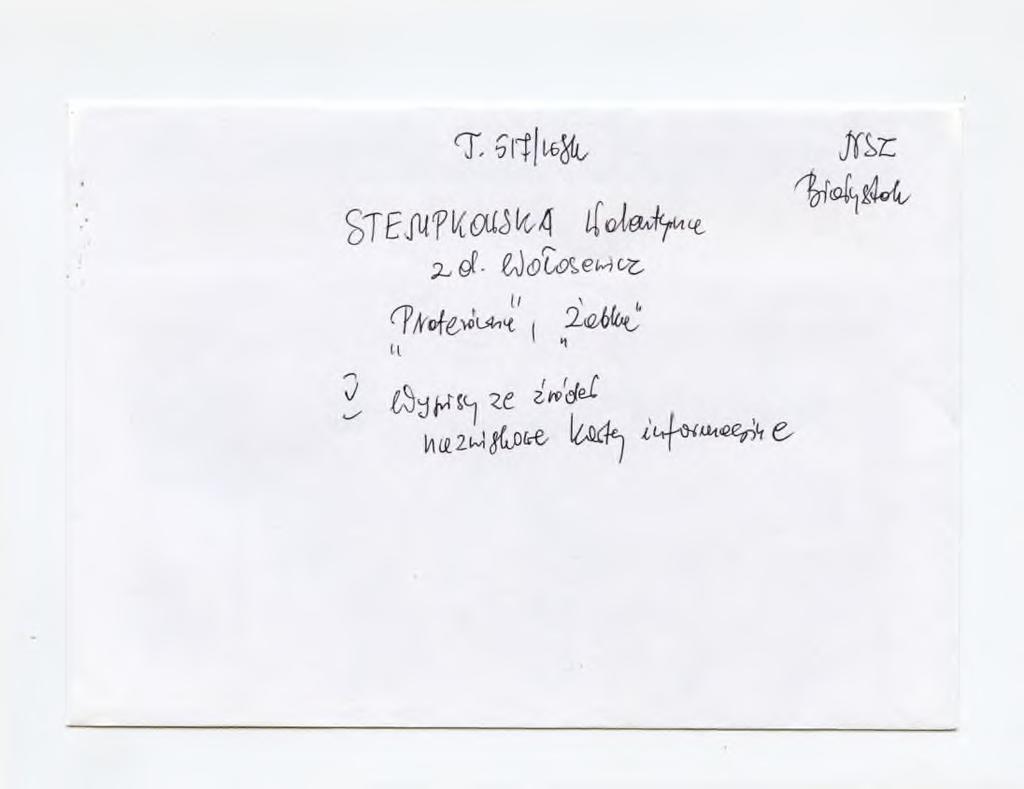 T. 517/WSK
NSZ
Białystok
STEMPKOWSKA Walentyna
z d. Wołosewicz
"Żabka"
V Wypisy ze źródeł
nazwiskowe karty informacyjne